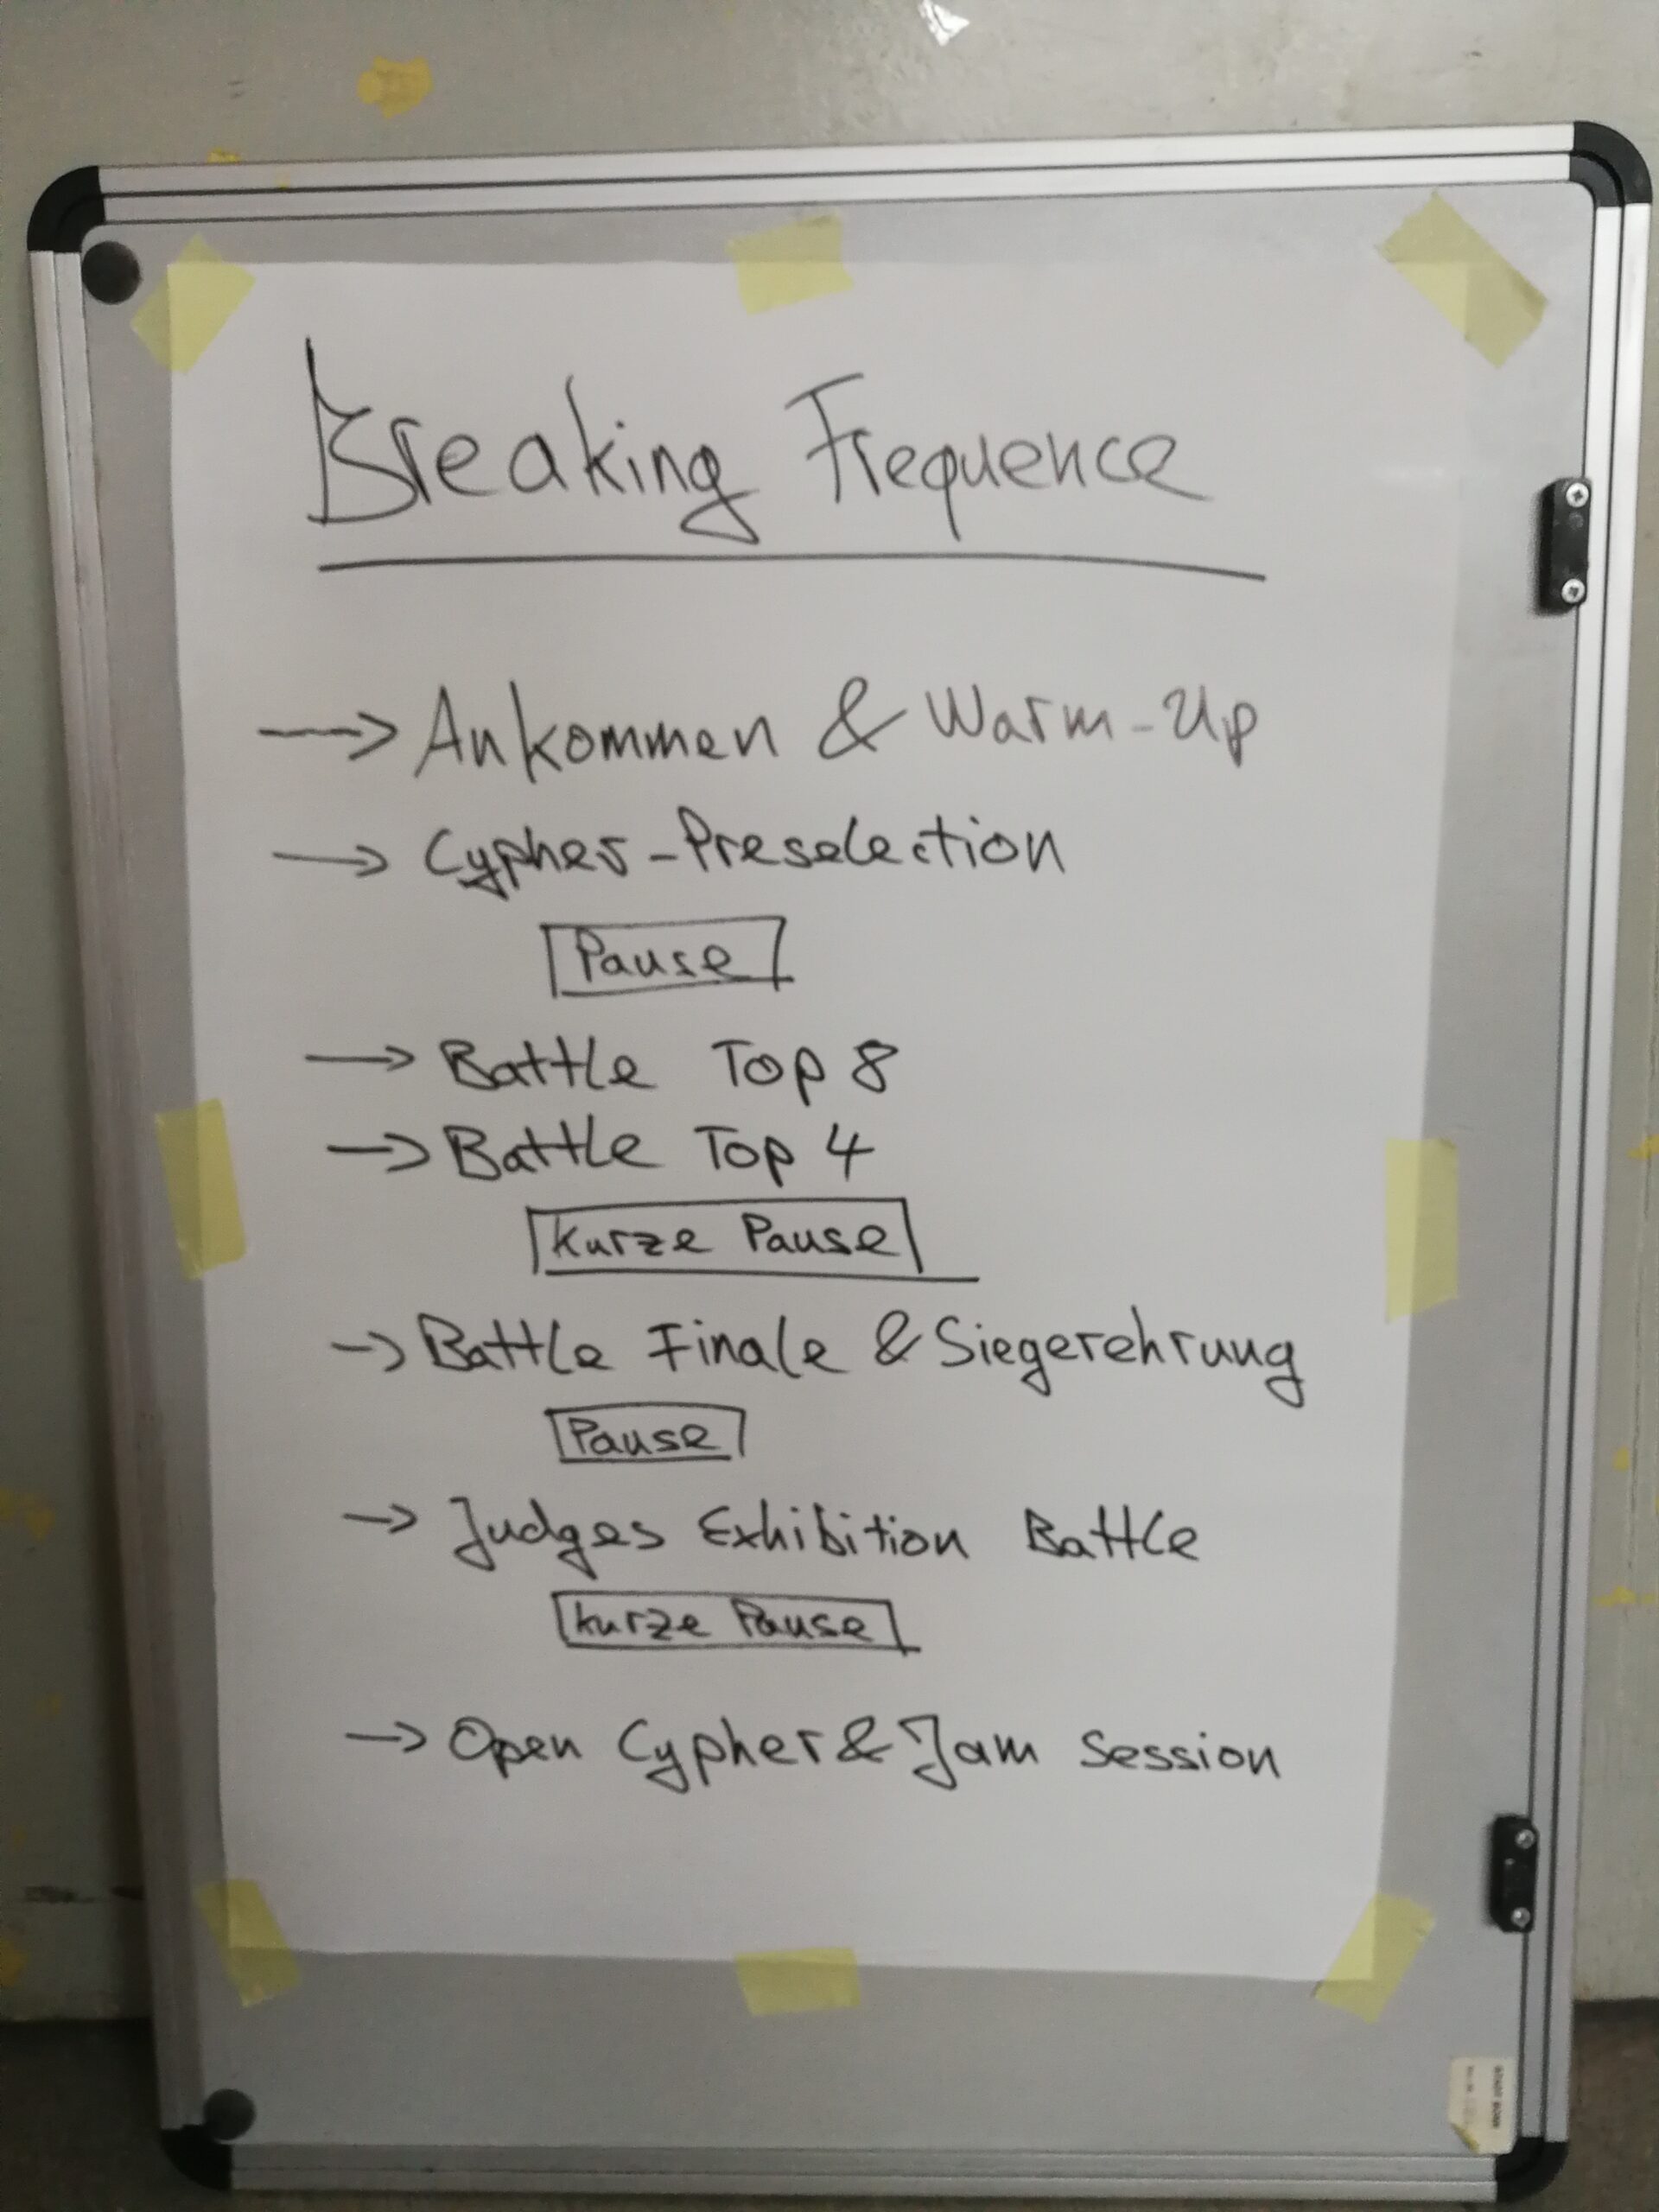 Breaking Frequence
→ Ankommen & Warm-Up
→ Cypher-Preselection
Pause
→ Battle Top 8
→ Battle Top 4
kurze Pause
→ Battle Finale & Siegerehrung
Pause
→ Judges Exhibition Battle
kurze Pause
→ Open Cypher & Jam Session